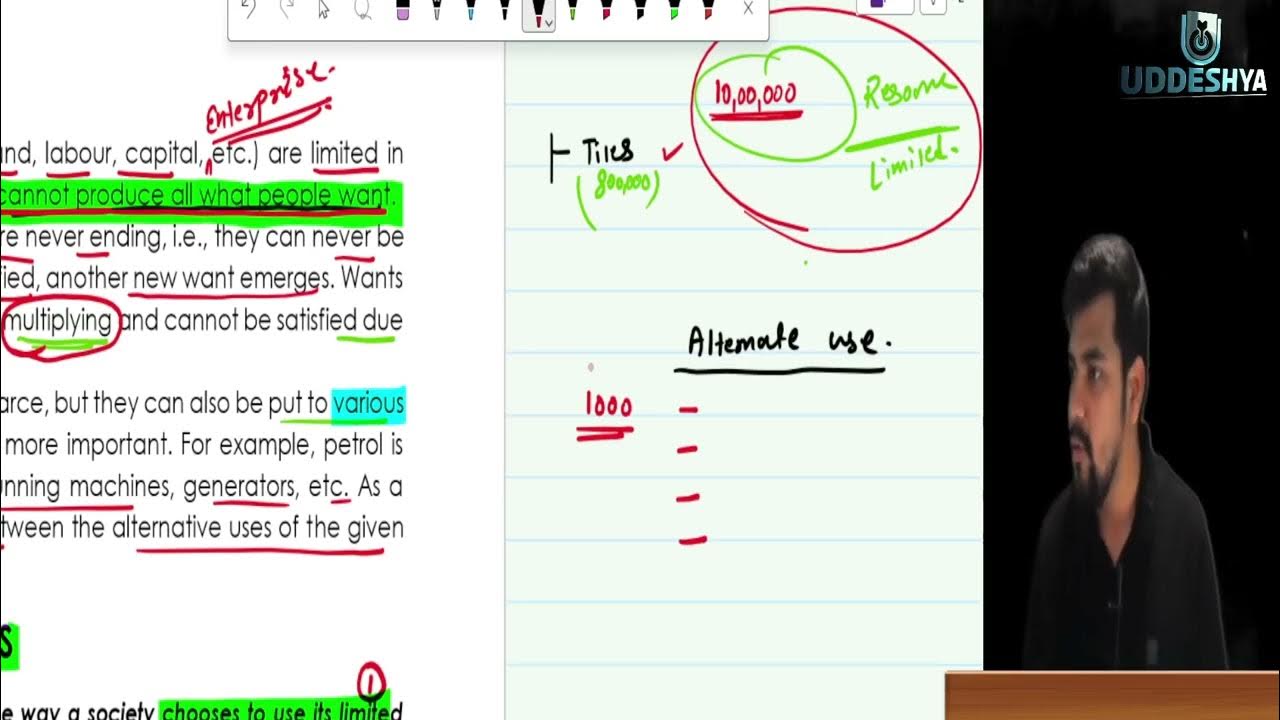 Enterprise.
and, labour, capital, etc.) are limited in
cannot produce all what people want.
re never ending, i.e., they can never be
fied, another new want emerges. Wants
multiplying and cannot be satisfied due
arce, but they can also be put to various
more important. For example, petrol is
unning machines, generators, etc. As a
tween the alternative uses of the given
S
1
e way a society chooses to use its limited
10,00,000
Resource
Limited.
Tiles
(800,000)
Alternate use.
1000
UDDESHYA